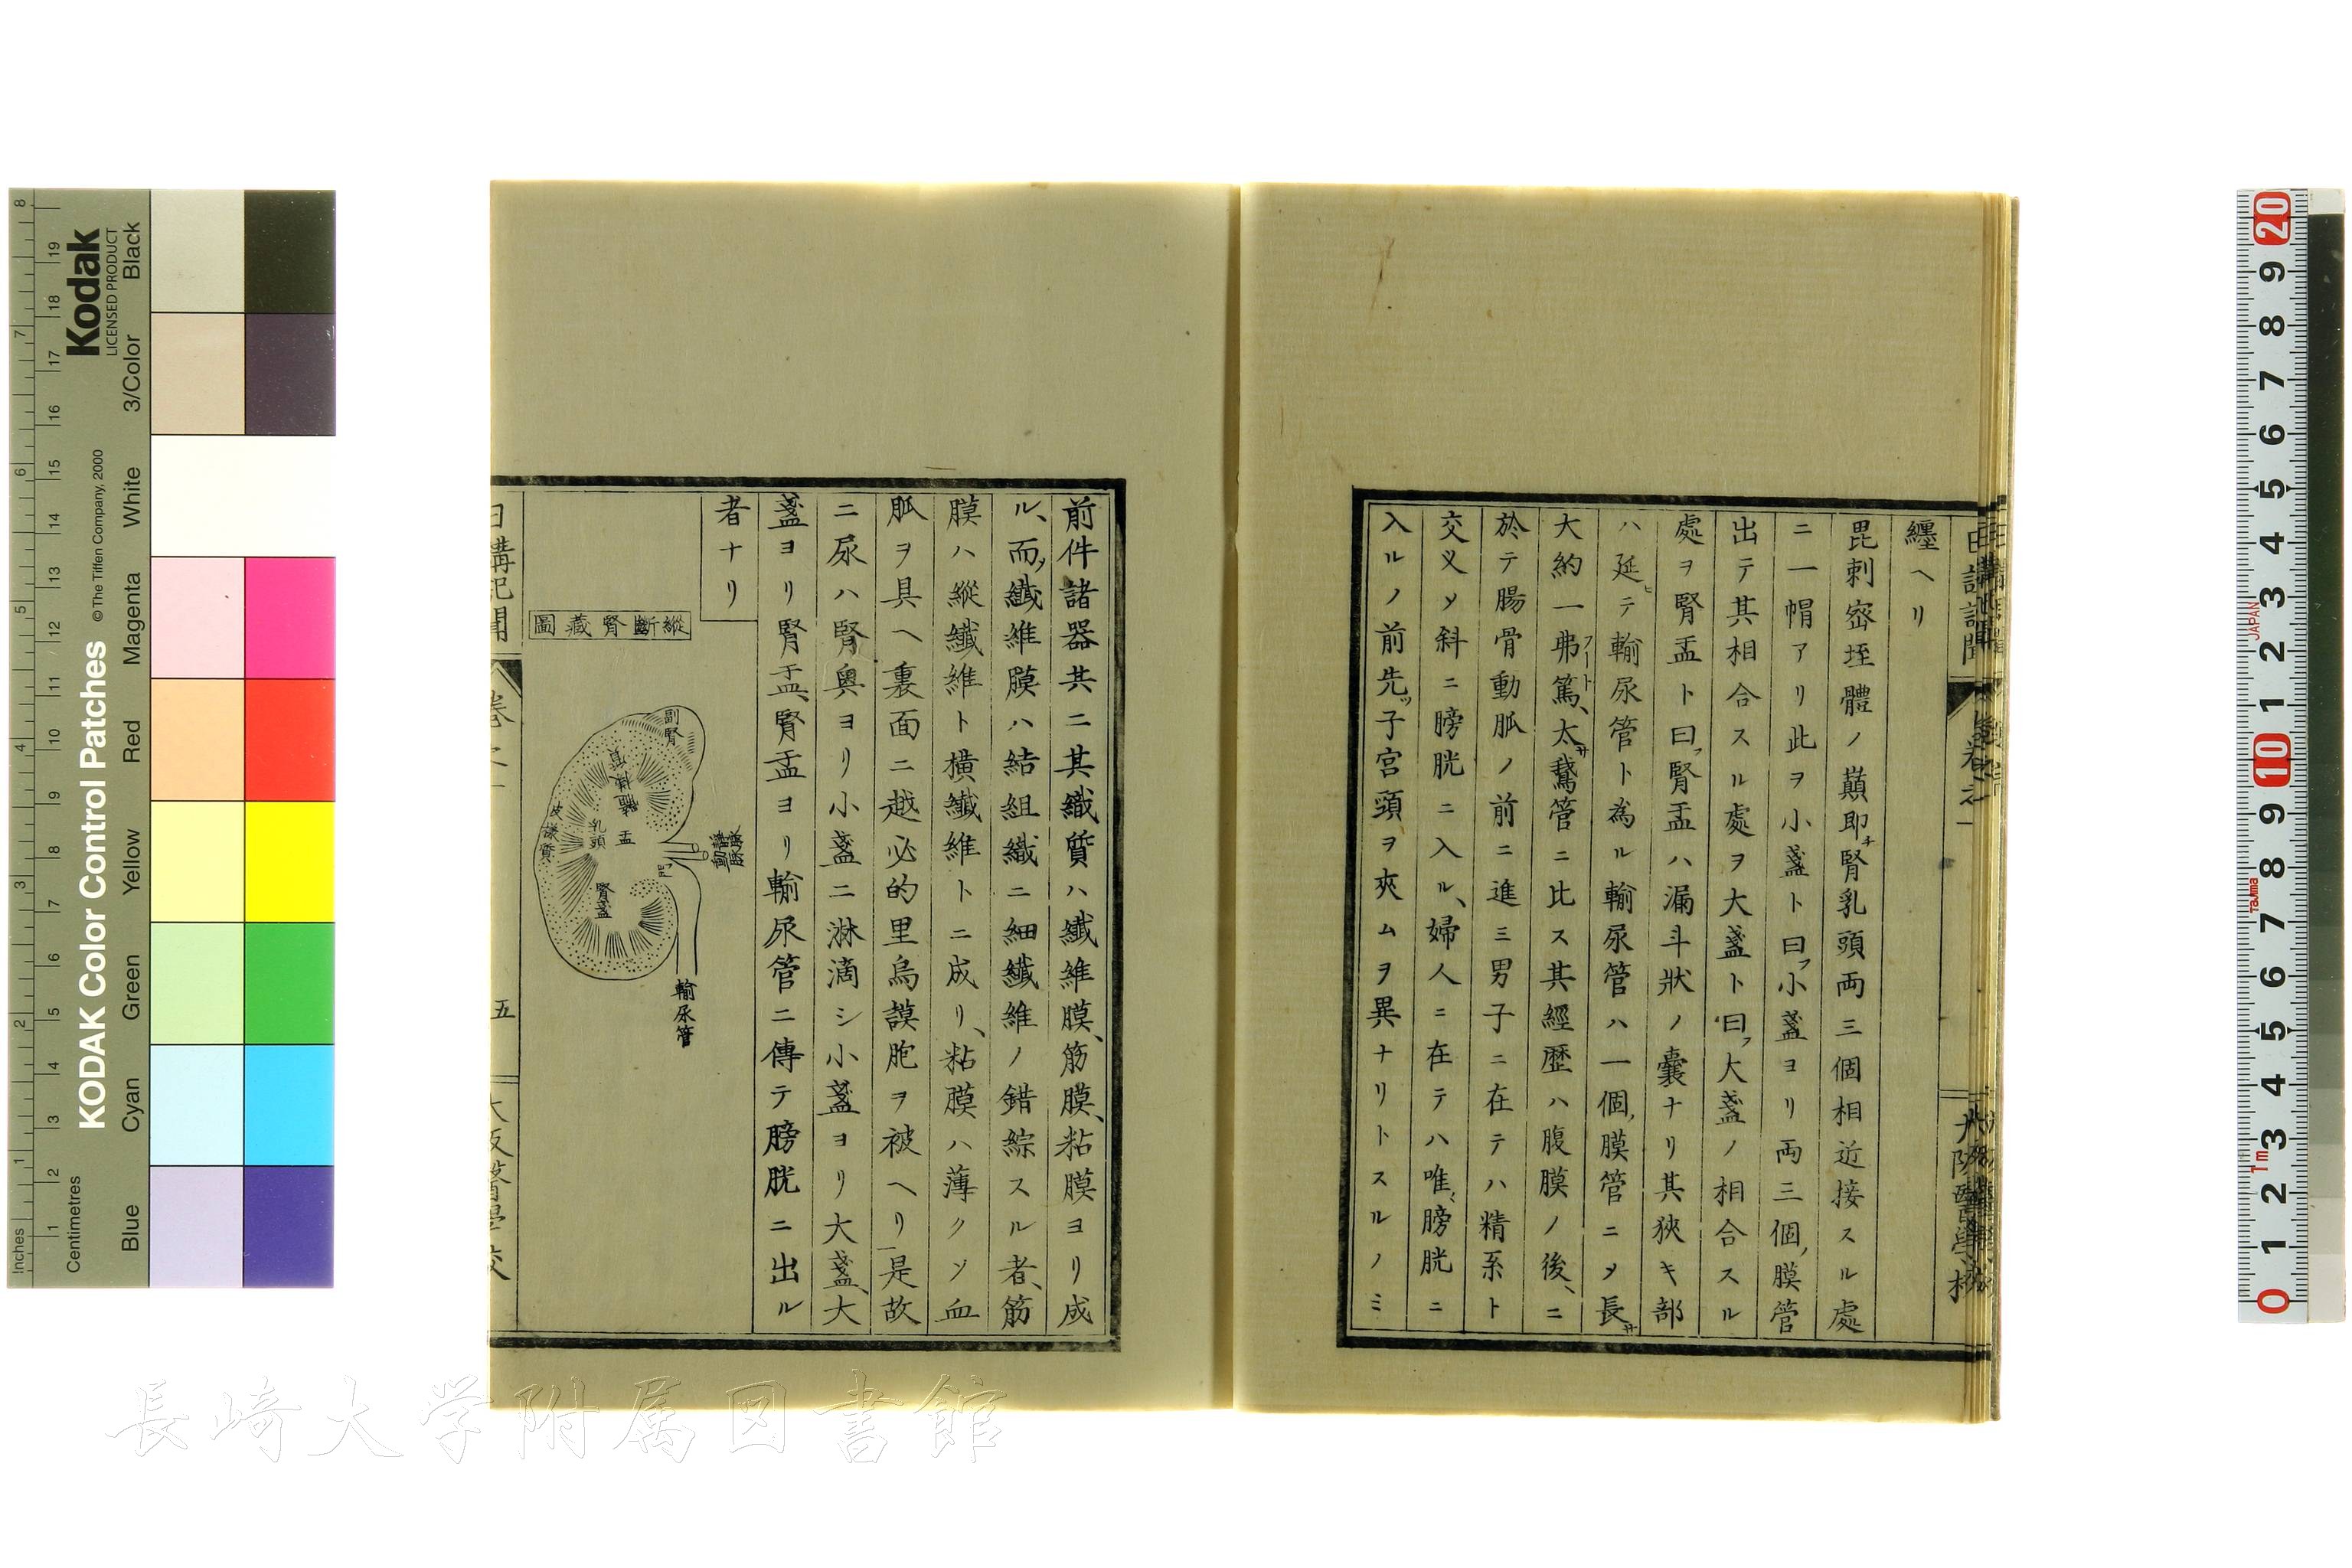 纏ヘリ
毘刺密垤體ノ巓即チ腎乳頭両三個相近接スル處
ニ一帽アリ此ヲ小盞ト曰フ小盞ヨリ両三個ノ膜管
出テ其相合スル處ヲ大盞ト曰フ大盞ノ相合スル
處ヲ腎盂ト曰フ腎盂ハ漏斗狀ノ嚢ナリ其狹キ部
ハ延ヒテ輸尿管ト為ル輸尿管ハ一個ノ膜管ニメ長サ
大約一弗篤、太サ鵞管ニ比ス其經歴ハ腹膜ノ後、ニ
フート
於テ腸骨動脈ノ前ニ進ミ男子ニ在テハ精系ト
交叉メ斜ニ膀胱ニ入ル、婦人ニ在テハ唯々膀胱ニ
入ルノ前先ツ子宮頭ヲ夾ムヲ異ナリトスルノミ
前件諸器共ニ其織質ハ纖維膜、筋膜、粘膜ヨリ成
ル、而メ纖維膜ハ結組織ニ細纖維ノ錯綜スル者、筋
膜ハ縱纖維ト橫纖維トニ成リ、粘膜ハ薄クソ血
脈ヲ具ヘ裏面ニ越必的里烏謨胞ヲ被ヘリ是故
ニ尿ハ腎奧ヨリ小盞ニ淋滴シ小盞ヨリ大盞、大
盞ヨリ腎盂、腎盂ヨリ輸尿管ニ傳テ膀胱ニ出ル
者ナリ
縱斷腎藏圖
副腎
乳頭
盂
腎盞
門
皮様質
動靜脈
輸尿管
日講記聞
卷之一
五
大阪醫學校
日講記聞
卷之一
大阪醫學校
長崎大学附属図書館
Kodak
LICENSED PRODUCT
KODAK Color Control Patches
© The Tiffen Company, 2000
Inches
Centimetres
1 2 3 4 5 6 7 8
1 2 3 4 5 6 7 8 9 10 11 12 13 14 15 16 17 18 19
Blue
Cyan
Green
Yellow
Red
Magenta
White
3/Color
Black
0 1 2 3 4 5 6 7 8 9 10 1 2 3 4 5 6 7 8 9 20
1m
Tajima
JAPAN